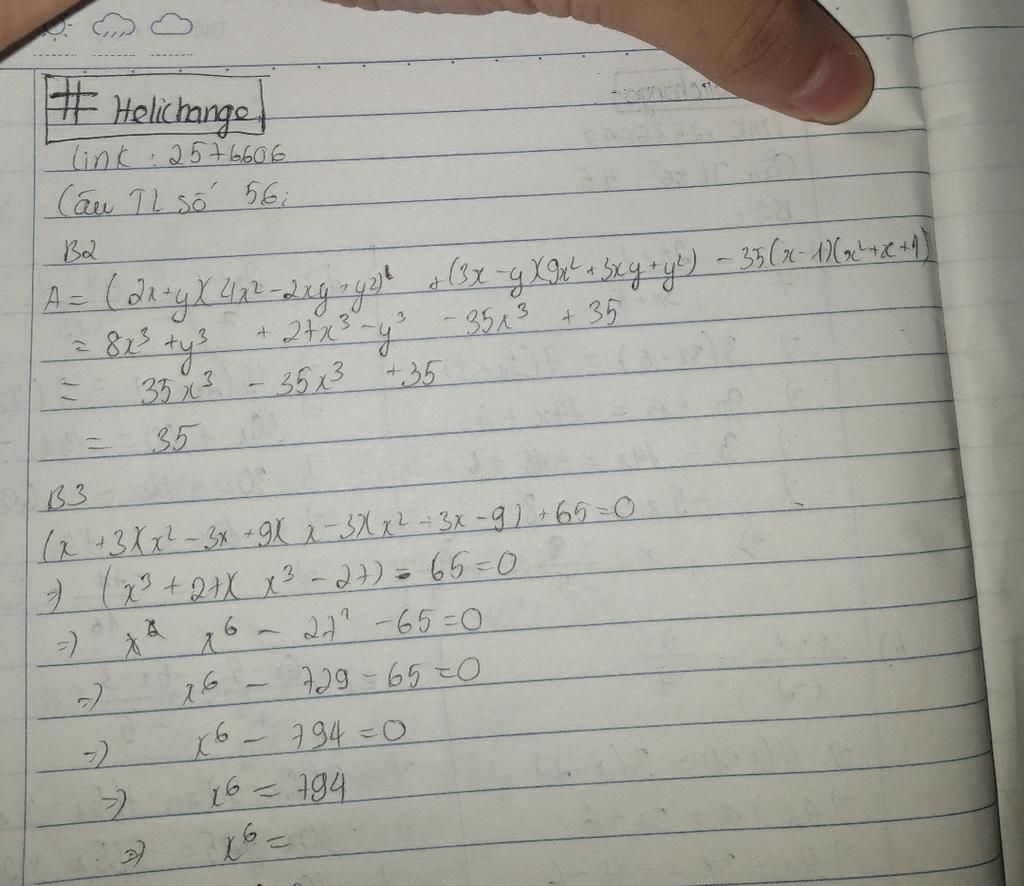 # Helichange
link : 2576606
Câu TL số 56:
B2
A = (2x+y)(4x² - 2xy + y²) + (3x - y)(9x² + 3xy + y²) - 35(x - 1)(x² + x + 1)
= 8x³ + y³ + 27x³ - y³ - 35x³ + 35
= 35x³ - 35x³ + 35
= 35
B3
(x + 3)(x² - 3x + 9)(x - 3)(x² + 3x - 9) + 65 = 0
=) (x³ + 27)(x³ - 27) - 65 = 0
=) x⁶ - 27² - 65 = 0
=) x⁶ - 729 - 65 = 0
=) x⁶ - 794 = 0
=) x⁶ = 794
=) x⁶ =